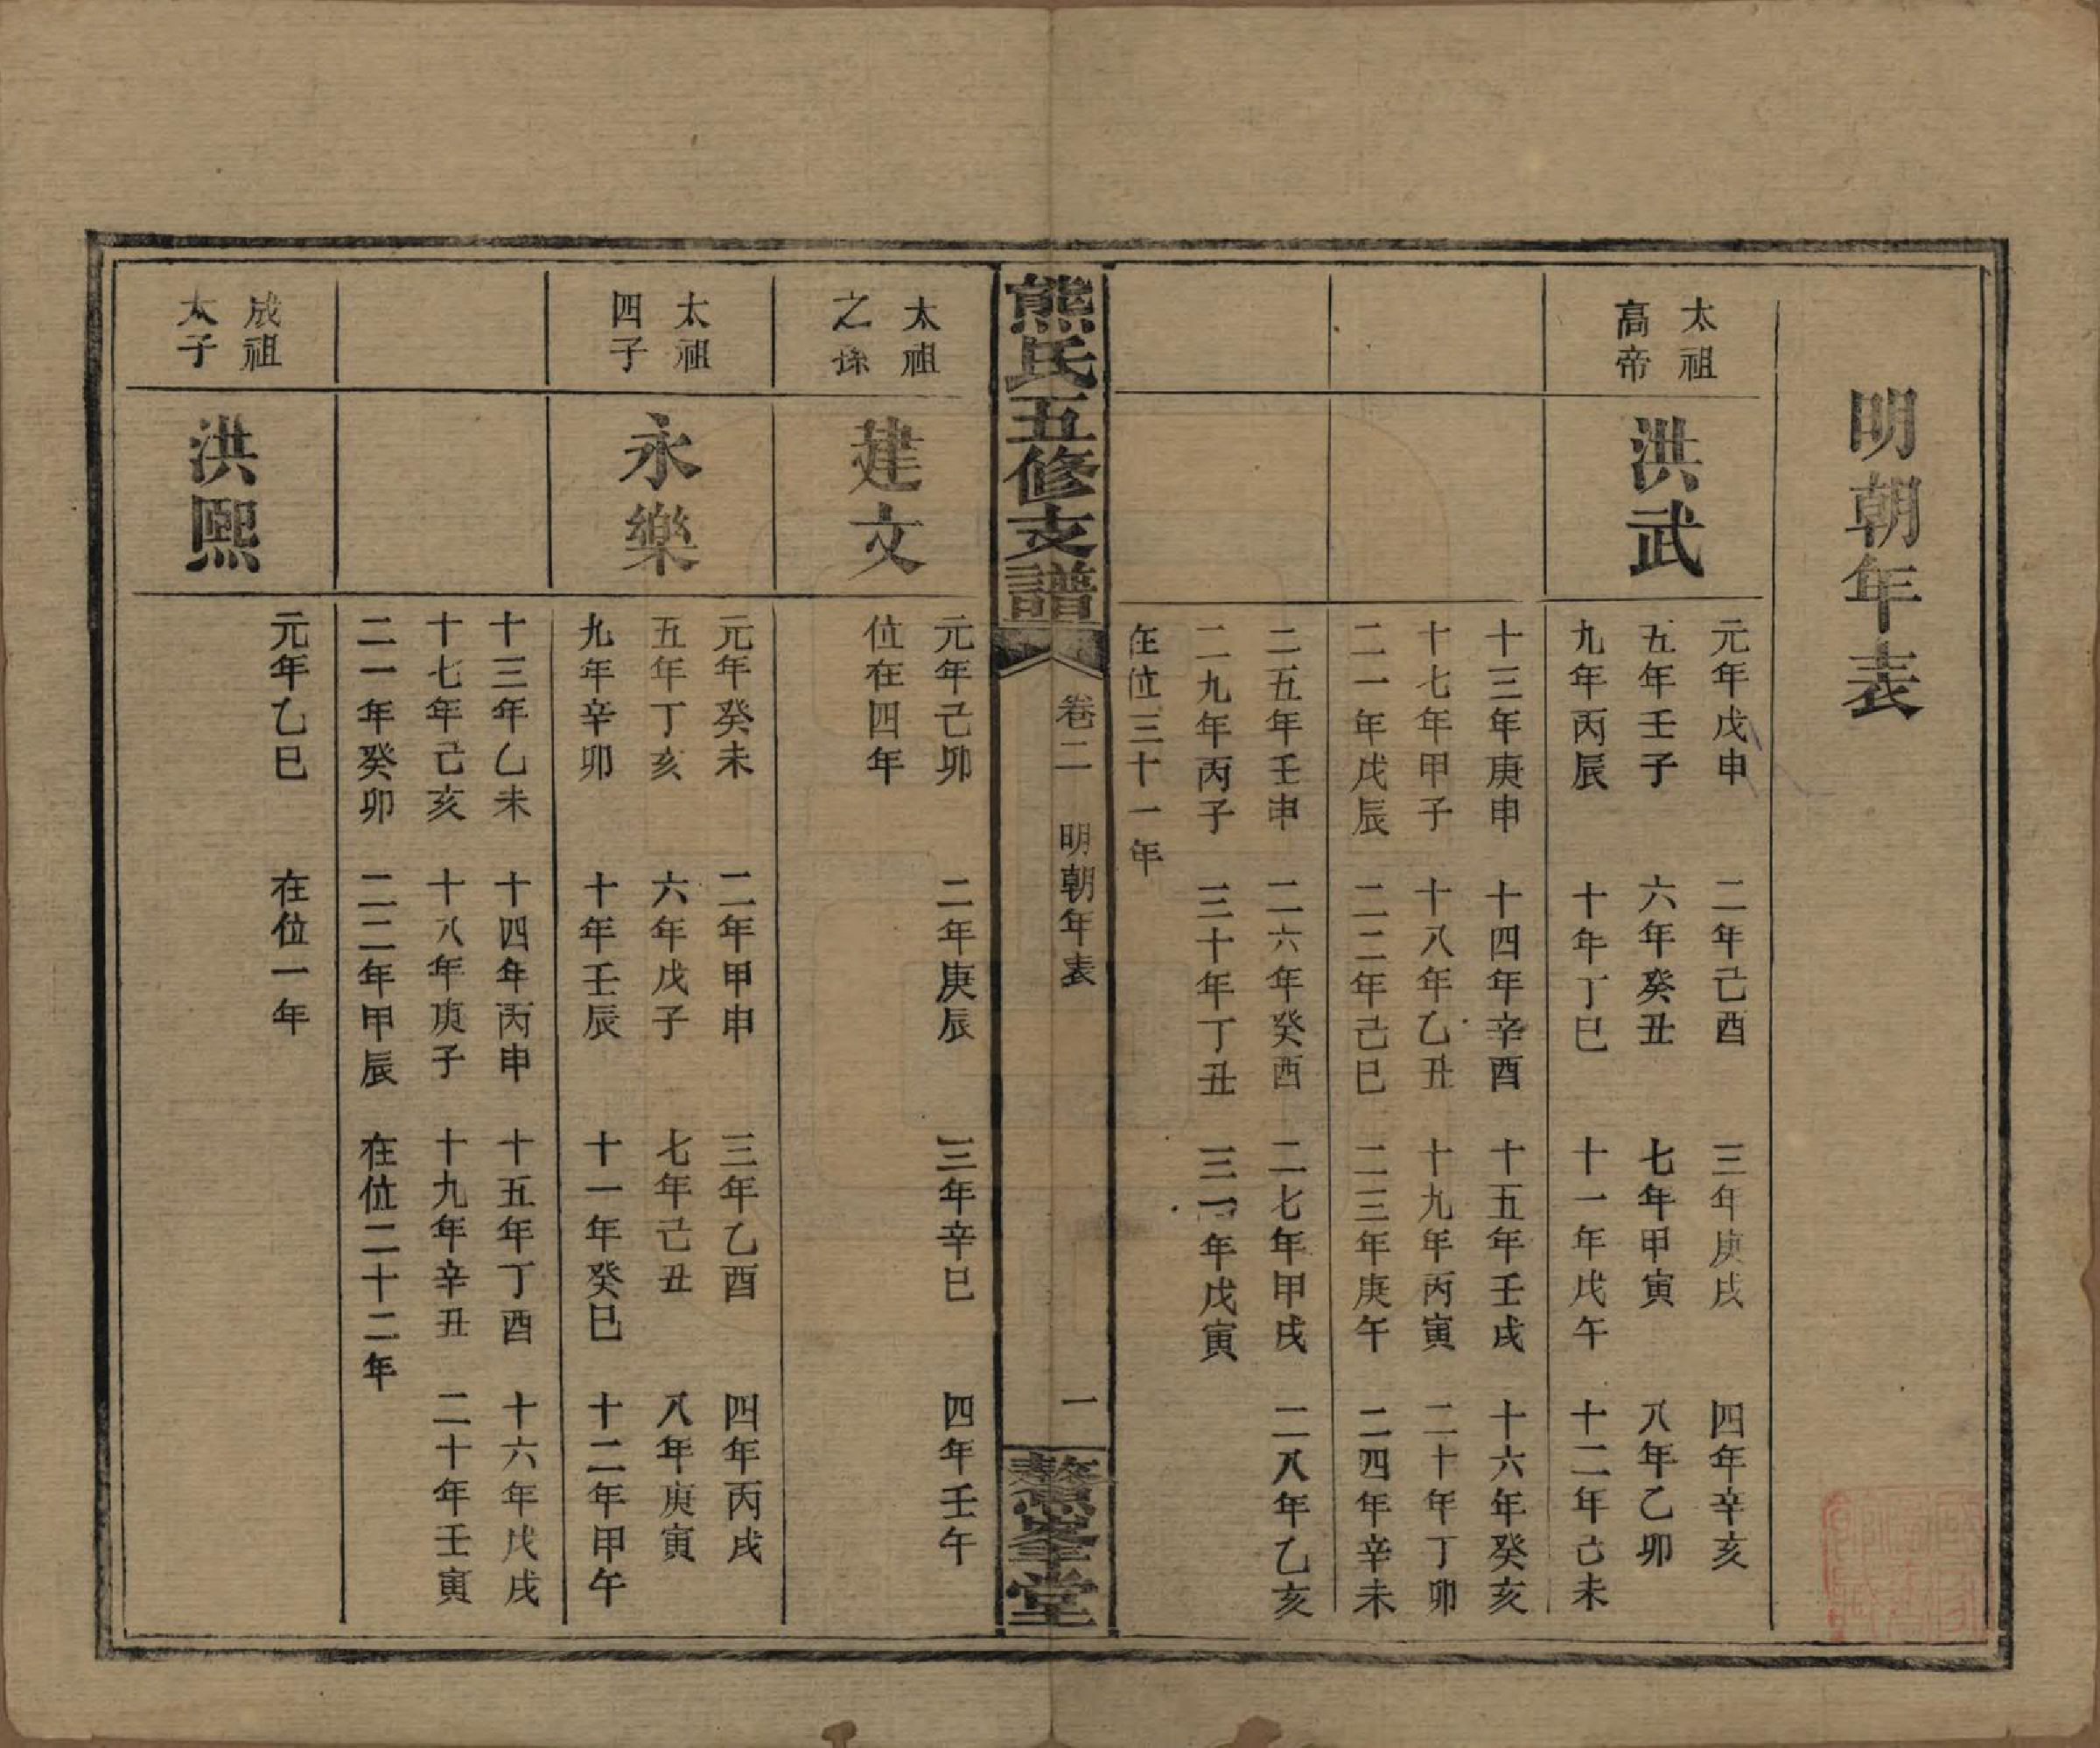 明朝年表
太祖
高帝
洪武
元年戊申 二年己酉 三年庚戌 四年辛亥
五年壬子 六年癸丑 七年甲寅 八年乙卯
九年丙辰 十年丁巳 十一年戊午 十二年己未
十三年庚申 十四年辛酉 十五年壬戌 十六年癸亥
十七年甲子 十八年乙丑 十九年丙寅 二十年丁卯
二一年戊辰 二二年己巳 二三年庚午 二四年辛未
二五年壬申 二六年癸酉 二七年甲戌 二八年乙亥
二九年丙子 三十年丁丑 三一年戊寅
在位三十一年
熊氏五修支譜 卷二 明朝年表 一
太祖
之孫
建文
元年己卯 二年庚辰 三年辛巳 四年壬午
位在四年
太祖
四子
永樂
元年癸未 二年甲申 三年乙酉 四年丙戌
五年丁亥 六年戊子 七年己丑 八年庚寅
九年辛卯 十年壬辰 十一年癸巳 十二年甲午
十三年乙未 十四年丙申 十五年丁酉 十六年戊戌
十七年己亥 十八年庚子 十九年辛丑 二十年壬寅
二一年癸卯 二二年甲辰 在位二十二年
成祖
太子
洪熙
元年乙巳 在位一年